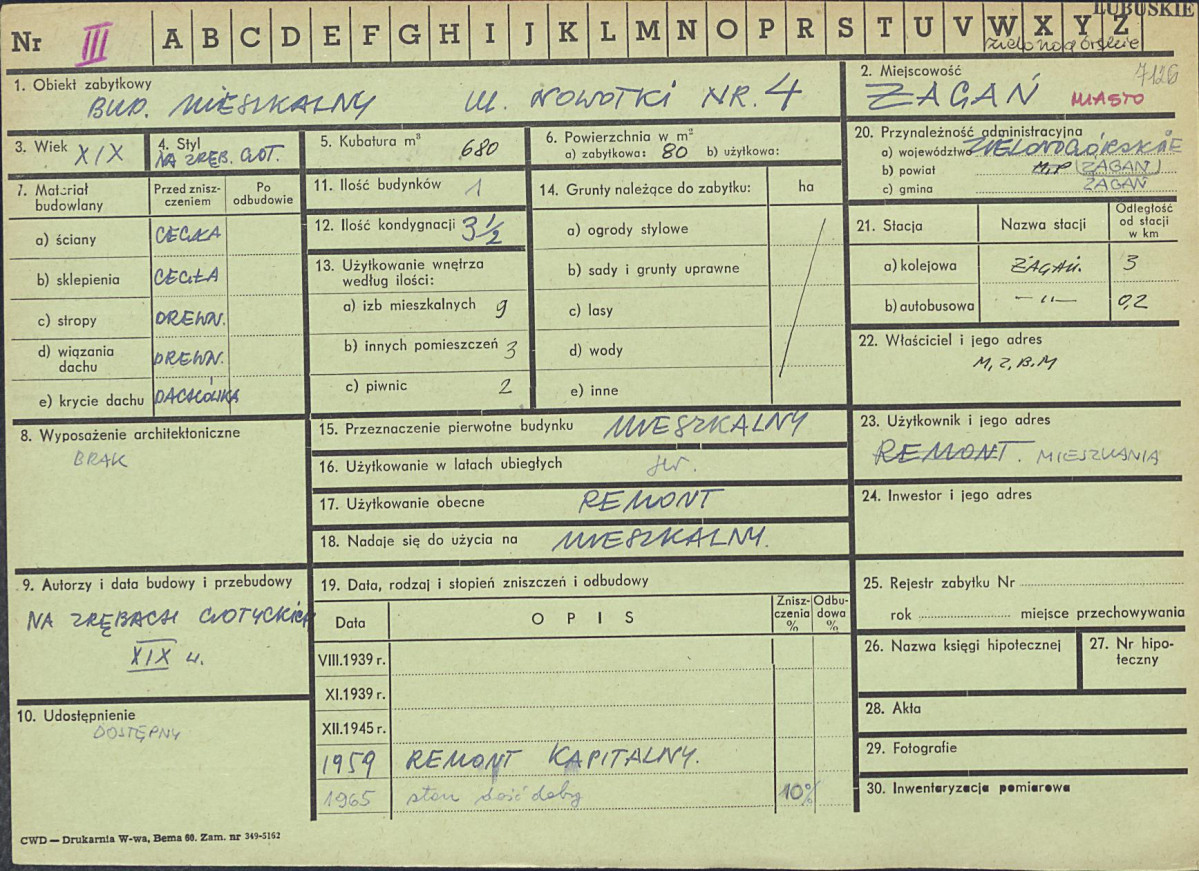 LUBUSKIE
Nr III A B C D E F G H I J K L M N O P R S T U V W X Y Z
zielonogórskie
1. Obiekt zabytkowy
BUD. MIESZKALNY ul. NOWOTKI NR. 4
2. Miejscowość 7126
ŻAGAŃ MIASTO
3. Wiek XIX
4. Styl
NA ZRĘB. GOT.
5. Kubatura m³ 680
6. Powierzchnia w m²
a) zabytkowa: 80 b) użytkowa:
20. Przynależność administracyjna
a) województwo ZIELONOGÓRSKIE
b) powiat M.P (ŻAGAŃ)
c) gmina ŻAGAŃ
7. Materiał budowlany
Przed zniszczeniem
Po odbudowie
a) ściany CEGŁA
b) sklepienia CEGŁA
c) stropy DREWN.
d) wiązania dachu DREWN.
e) krycie dachu DACHÓWKA
11. Ilość budynków 1
12. Ilość kondygnacji 3 1/2
13. Użytkowanie wnętrza
według ilości:
a) izb mieszkalnych 9
b) innych pomieszczeń 3
c) piwnic 2
14. Grunty należące do zabytku: ha
a) ogrody stylowe
b) sady i grunty uprawne
c) lasy
d) wody
e) inne
21. Stacja Nazwa stacji Odległość od stacji w km
a) kolejowa ŻAGAŃ. 3
b) autobusowa —„— 0,2
22. Właściciel i jego adres
M.Z.B.M
8. Wyposażenie architektoniczne
BRAK
15. Przeznaczenie pierwotne budynku MIESZKALNY
16. Użytkowanie w latach ubiegłych
17. Użytkowanie obecne REMONT
18. Nadaje się do użycia na MIESZKALNY.
23. Użytkownik i jego adres
REMONT. MIESZKANIA
24. Inwestor i jego adres
9. Autorzy i data budowy i przebudowy
NA ZRĘBACH GOTYCKICH
XIX w.
10. Udostępnienie
DOSTĘPNY
19. Data, rodzaj i stopień zniszczeń i odbudowy
Data OPIS Zniszczenia % Odbudowa %
VIII.1939 r.
XI.1939 r.
XII.1945 r.
1959 REMONT KAPITALNY.
1965 stan dość dobry 10%
25. Rejestr zabytku Nr
rok miejsce przechowywania
26. Nazwa księgi hipotecznej
27. Nr hipoteczny
28. Akta
29. Fotografie
30. Inwentaryzacja pomiarowa
CWD — Drukarnia W-wa, Bema 60. Zam. nr 349-5162